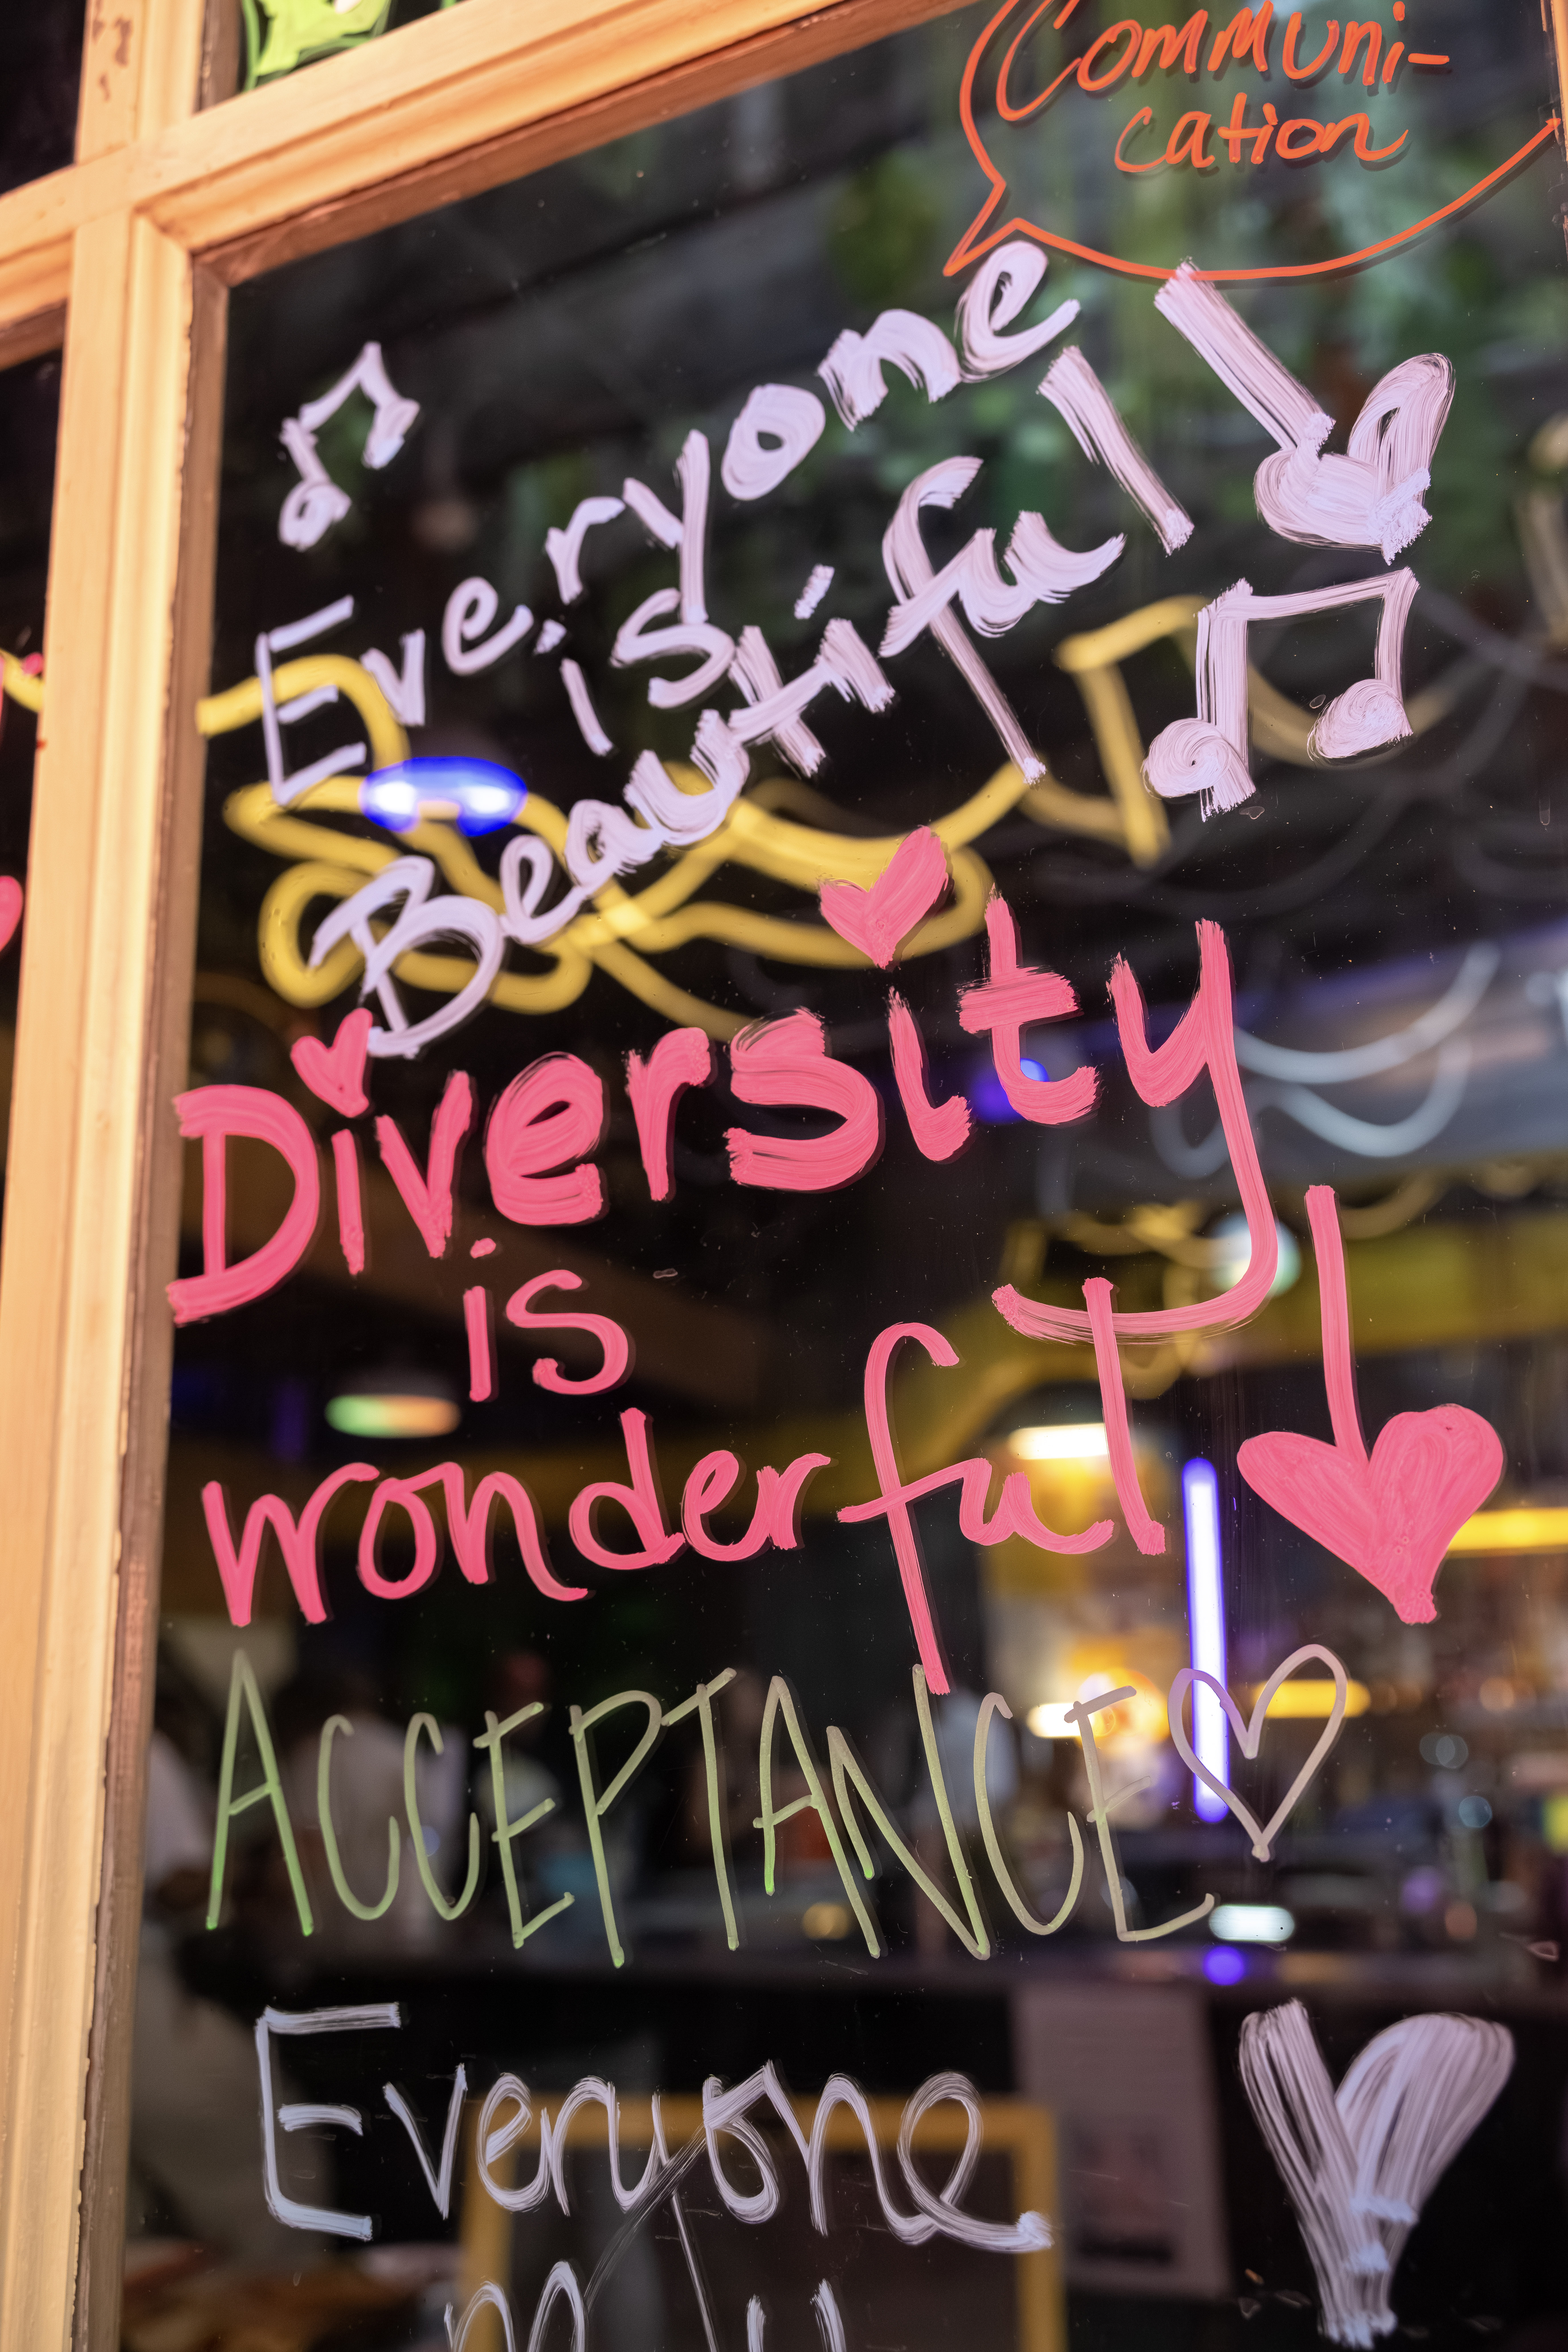 Communi-
cation
Everyone
is
Beautiful!
Diversity
is
wonderful!
ACCEPTANCE
Everyone